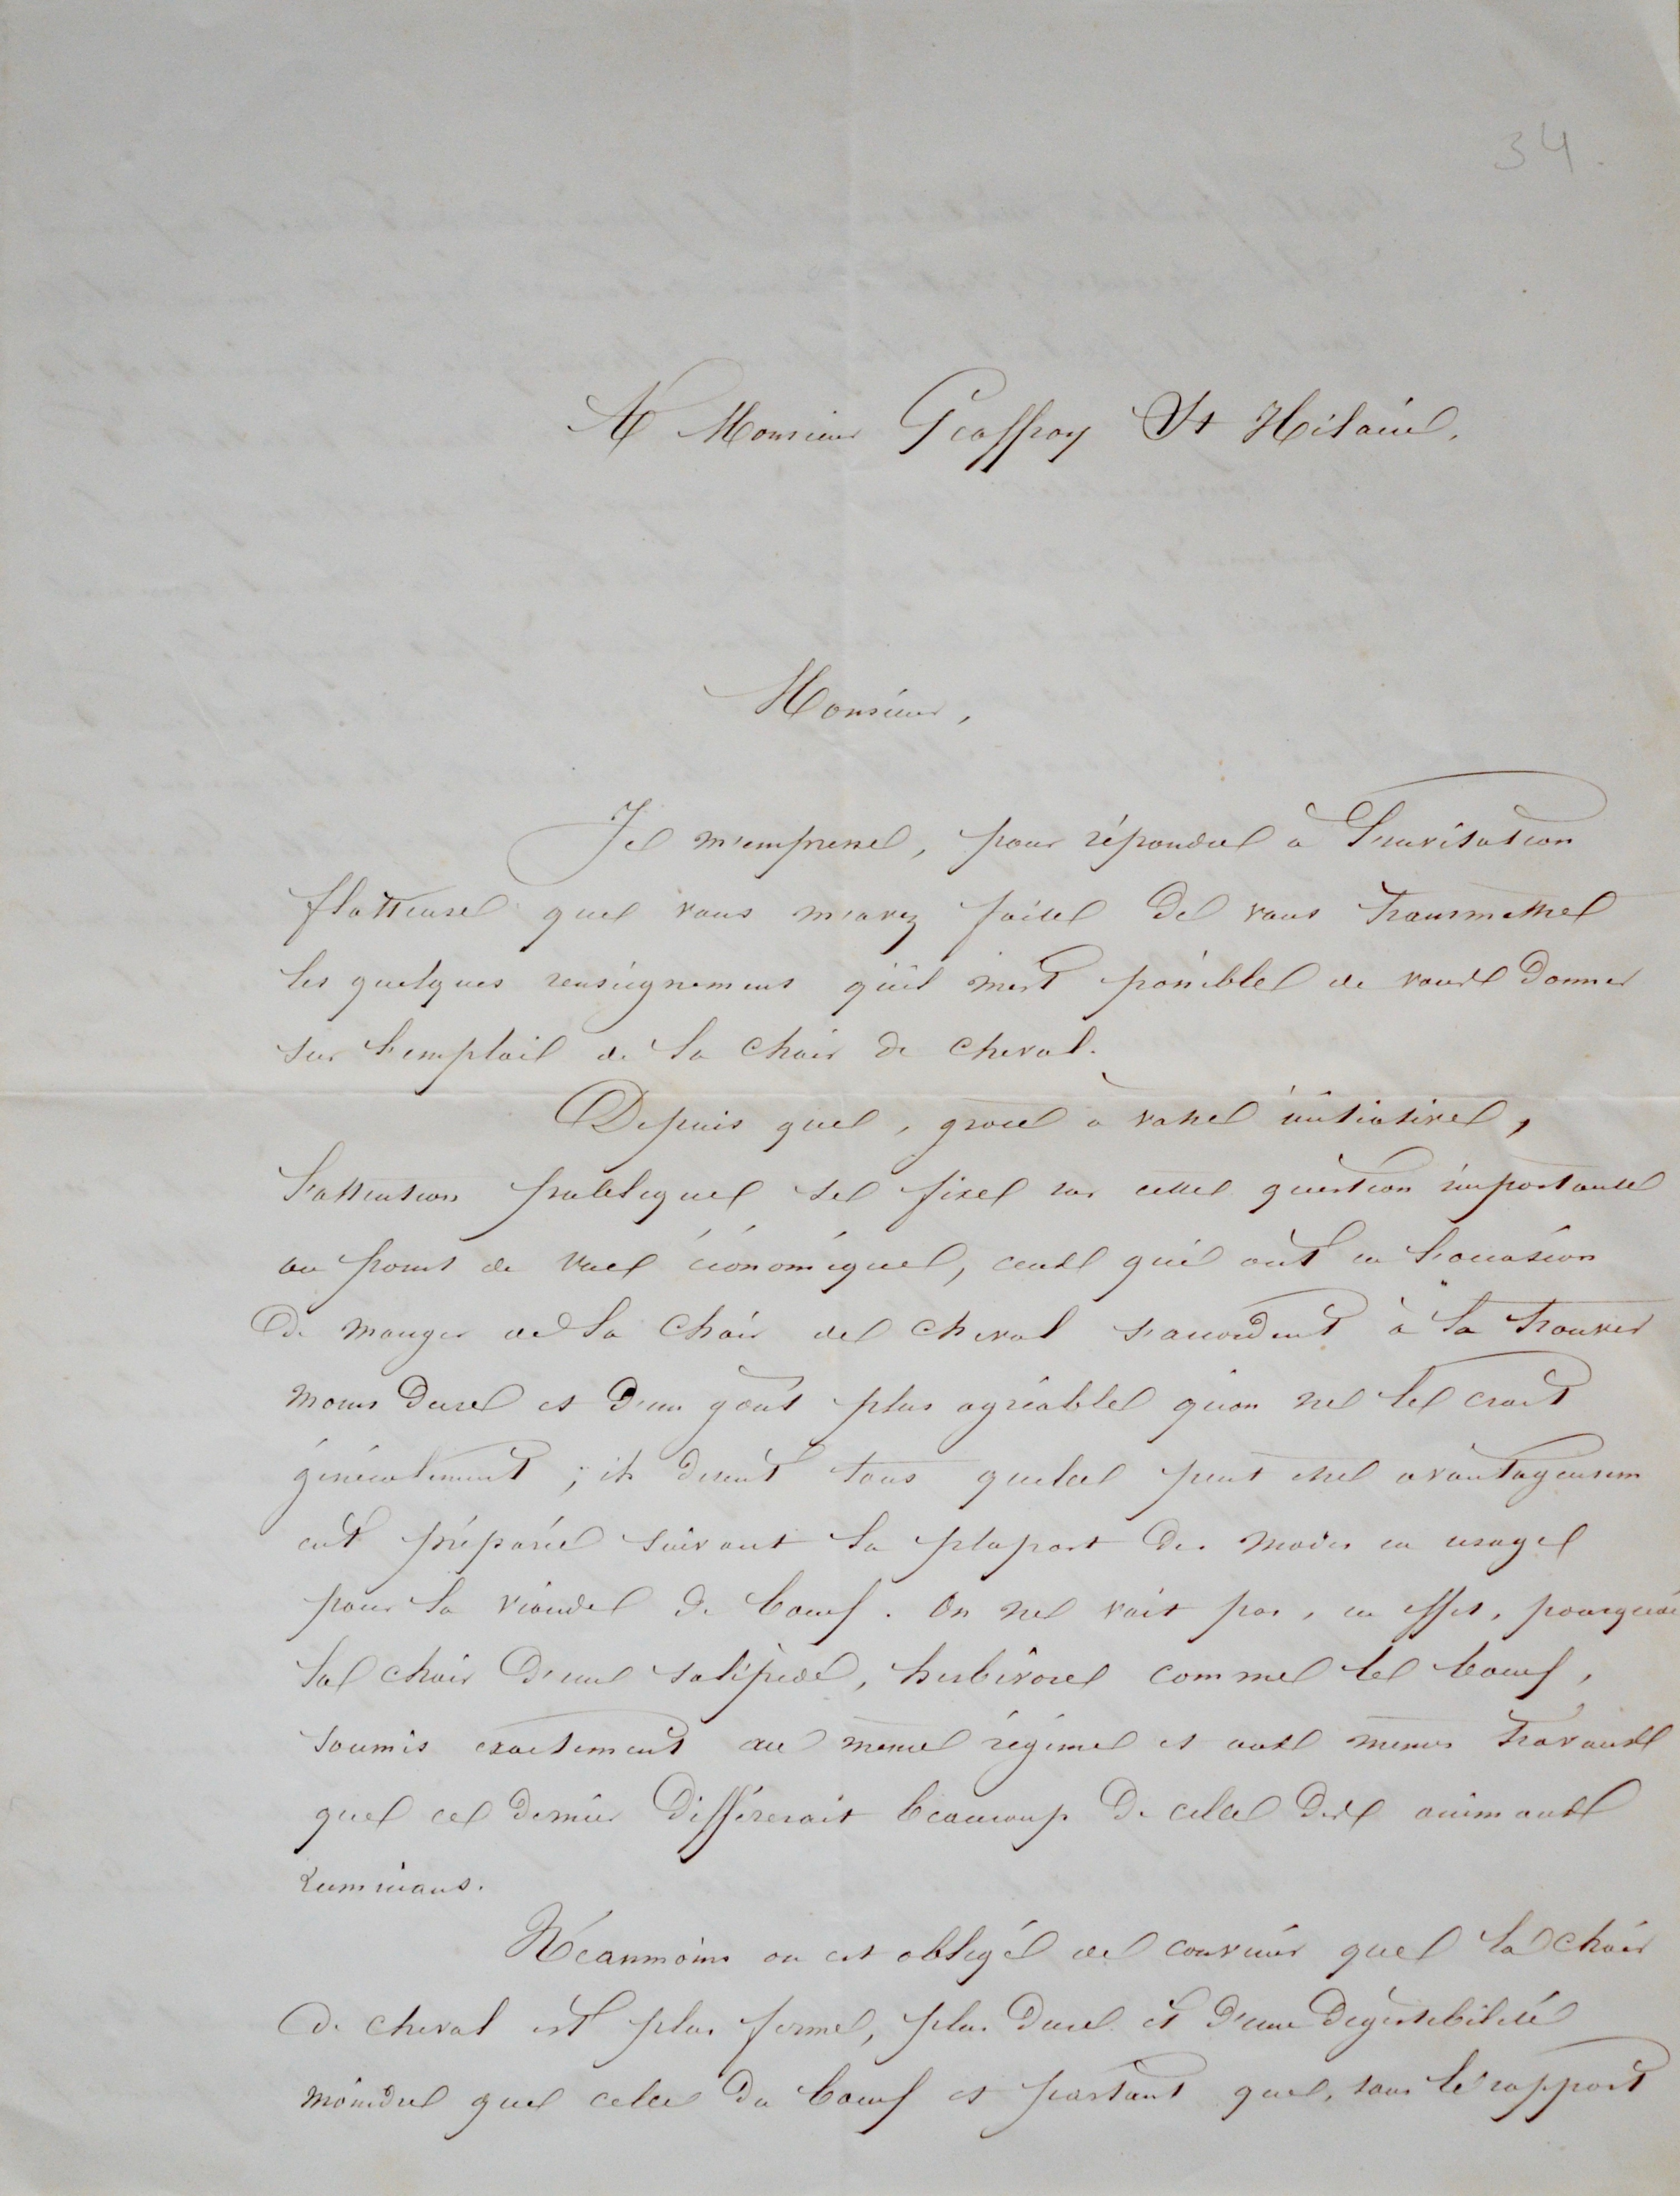 34.
A Monsieur Geoffroy St Hilaire.
Monsieur,
Je m'empresse, pour répondre à l'invitation
flatteuse que vous m'avez faite de vous transmettre
les quelques renseignemens qu'il m'est possible de vous donner
sur l'emploi de la chair de cheval.
Depuis que, grace à votre initiative,
l'attention publique se fixe sur cette question importante
au point de vue économique, ceux qui ont eu l'occasion
de manger de la chair de cheval s'accordent à la trouver
moins dure et d'un goût plus agréable qu'on ne le croit
généralement ; ils disent tous quelle peut etre avantageusem
ent préparée suivant la plupart des modes en usage
pour la viande de boeuf. On ne voit pas, en effet, pourquoi
la chair d'un solipède, herbivore comme le boeuf,
soumis exactement au meme régime et aux memes travaux
que ce dernier différerait beaucoup de celle des animaux
ruminans.
Néanmoins on est obligé de convenir que la chair
de cheval est plus ferme, plus dure et d'une digestibilité
moindre que celle du boeuf et partant que, sous le rapport